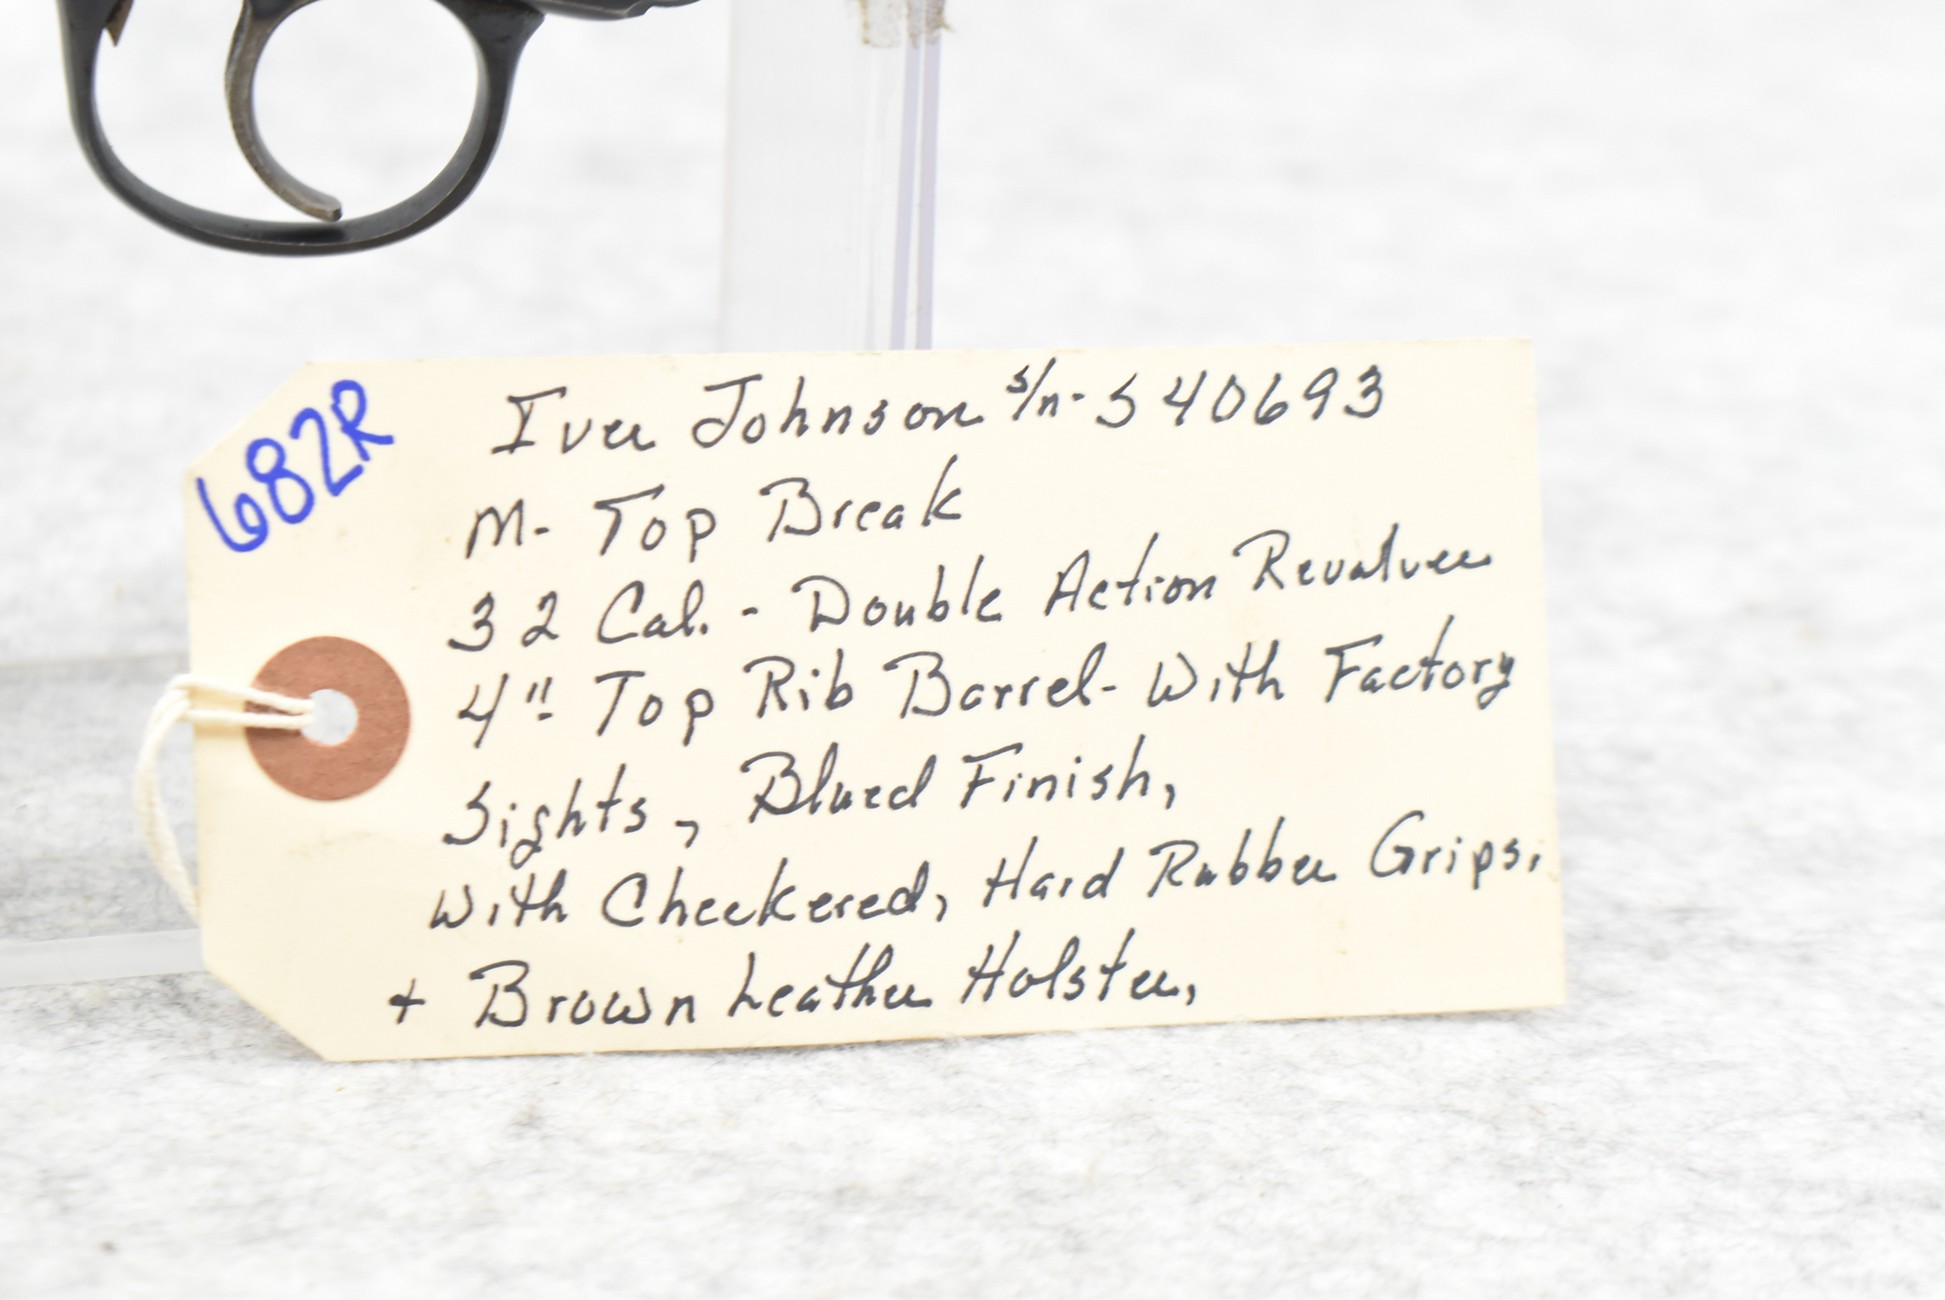 682R
Iver Johnson s/n- S40693
M- Top Break
32 Cal. - Double Action Revalver
4" Top Rib Barrel- With Factory
Sights, Blued Finish,
With Checkered, Hard Rubber Grips.
+ Brown Leather Holster,